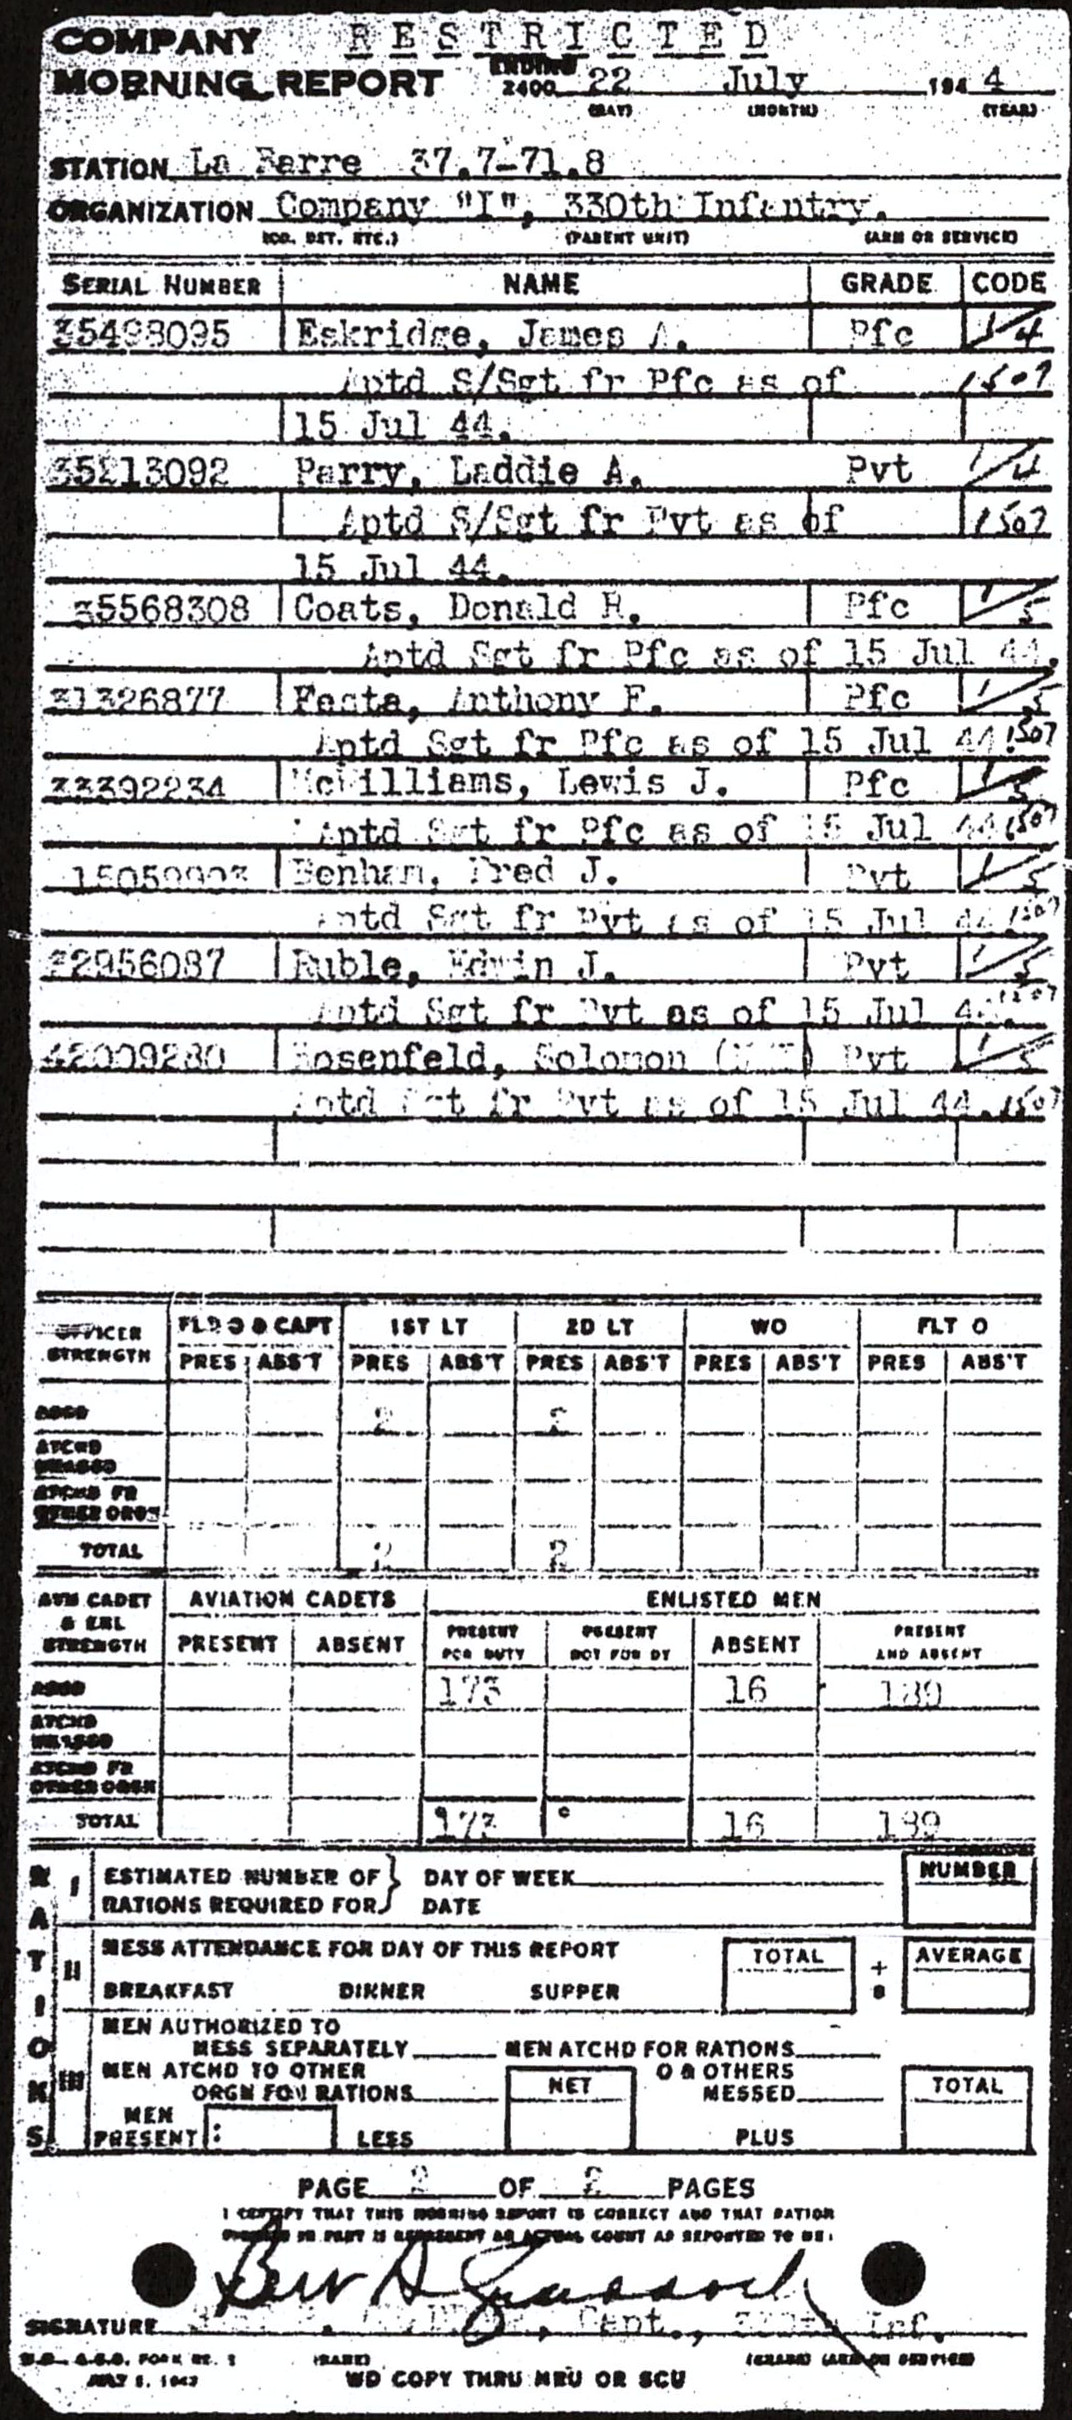 COMPANY RESTRICTED
MORNING REPORT ENDING 2400 22 July 1944
(DAY) (MONTH) (YEAR)
STATION La Barre 37.7-71.8
ORGANIZATION Company "I", 330th Infantry.
(CO. DET. ETC.) (PARENT UNIT) (ARM OR SERVICE)
SERIAL NUMBER NAME GRADE CODE
35498095 Eskridge, James A. Pfc 1/4
Aptd S/Sgt fr Pfc as of 1507
15 Jul 44.
35213092 Parry, Laddie A. Pvt 1/4
Aptd S/Sgt fr Pvt as of 1507
15 Jul 44.
35568308 Coats, Donald H. Pfc 1/5
Aptd Sgt fr Pfc as of 15 Jul 44.
31326877 Festa, Anthony F. Pfc 1/5
Aptd Sgt fr Pfc as of 15 Jul 44. 1507
33392234 McWilliams, Lewis J. Pfc 1/5
Aptd Sgt fr Pfc as of 15 Jul 44 1507
Benham, Fred J. Pvt 1/5
Aptd Sgt fr Pvt as of 15 Jul 44 1507
32956087 Ruble, Edwin J. Pvt 1/5
Aptd Sgt fr Pvt as of 15 Jul 44. 1507
42009280 Rosenfeld, Solomon (NMI) Pvt 1/5
Aptd Sgt fr Pvt as of 15 Jul 44. 1507
OFFICER STRENGTH FLD O & CAPT 1ST LT 2D LT WO FLT O
PRES ABS'T PRES ABS'T PRES ABS'T PRES ABS'T PRES ABS'T
ASGD 2 2
ATCHD UNASGD
ATCHD FR OTHER ORGN
TOTAL 2 2
AVN CADET & ENL STRENGTH AVIATION CADETS ENLISTED MEN
PRESENT ABSENT PRESENT FOR DUTY PRESENT NOT FOR DY ABSENT PRESENT AND ABSENT
ASGD 173 16 189
ATCHD UNASGD
ATCHD FR OTHER ORGN
TOTAL 173 16 189
RATIONS
I ESTIMATED NUMBER OF } DAY OF WEEK NUMBER
RATIONS REQUIRED FOR DATE
II MESS ATTENDANCE FOR DAY OF THIS REPORT TOTAL AVERAGE
BREAKFAST DINNER SUPPER
III MEN AUTHORIZED TO
MESS SEPARATELY MEN ATCHD FOR RATIONS
MEN ATCHD TO OTHER O & OTHERS
ORGN FOR RATIONS NET MESSED TOTAL
MEN PRESENT : LESS PLUS
PAGE 2 OF 2 PAGES
I CERTIFY THAT THIS MORNING REPORT IS CORRECT AND THAT RATION
FIGURES IN PART II REPRESENT AN ACTUAL COUNT AS REPORTED TO ME:
SIGNATURE Capt., 330th Inf.
(NAME) (GRADE) (ARM OR SERVICE)
W.D., A.G.O. FORM NO. 1
JULY 1, 1943
WD COPY THRU MRU OR SCU